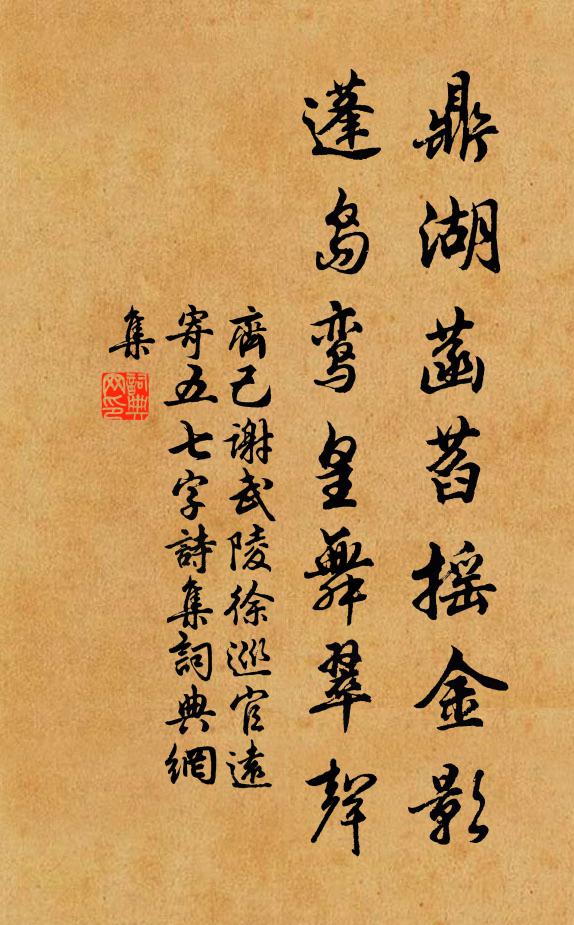 鼎湖菡萏摇金影
蓬岛鸾皇舞翠聲
齊己谢武陵徐巡官遠
寄五七字詩集詞典網
集
詞典
网印